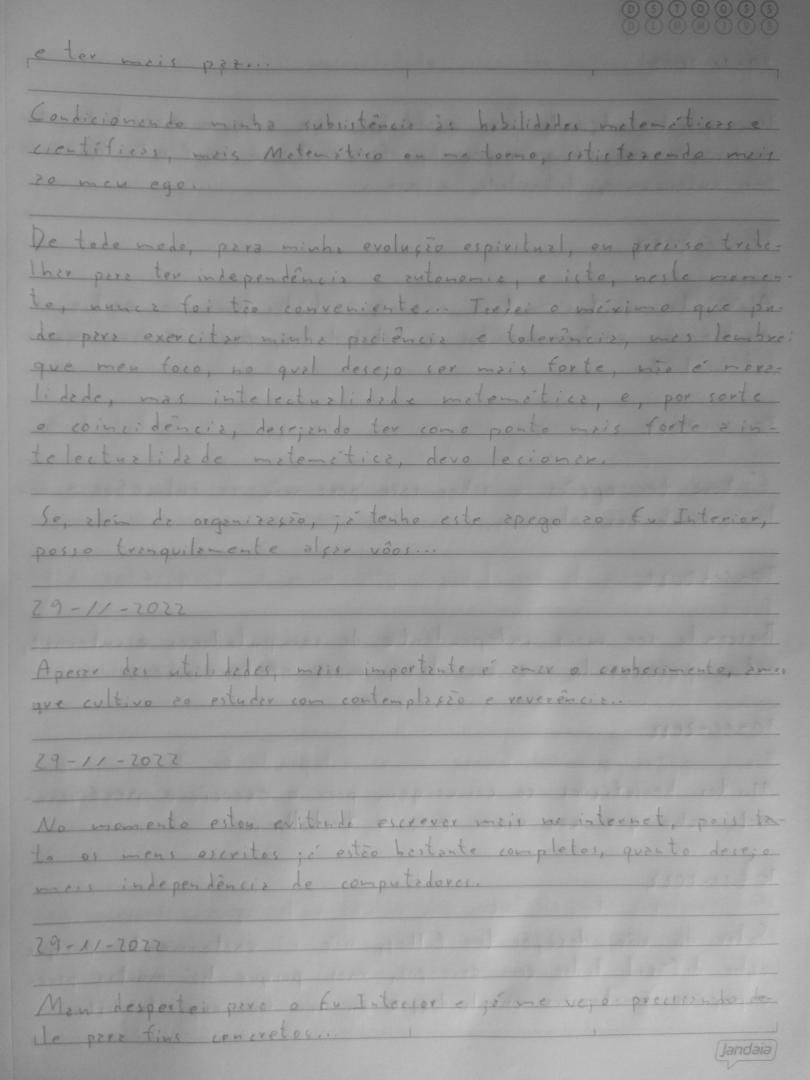 D S T Q Q S S
D L M M J V S
e ter mais paz...
Condicionando minha subsistência às habilidades matemáticas e
científicas, mais Matemático eu me torno, satisfazendo mais
ao meu ego.
De todo modo, para minha evolução espiritual, eu preciso traba-
lhar para ter independência e autonomia, e isto, neste momen-
to, nunca foi tão conveniente... Tentei o máximo que pu-
de para exercitar minha paciência e tolerância, mas lembrei
que meu foco, no qual desejo ser mais forte, não é mora-
lidade, mas intelectualidade matemática, e, por sorte
e coincidência, desejando ter como ponto mais forte a in-
telectualidade matemática, devo lecionar.
Se, além da organização, já tenho este apego ao Eu Interior,
posso tranquilamente alçar vôos...
29-11-2022
Apesar das utilidades, mais importante é amar o conhecimento, amor
que cultivo ao estudar com contemplação e reverência...
29-11-2022
No momento estou evitando escrever mais na internet, pois tan-
to os meus escritos já estão bastante completos, quanto desejo
mais independência de computadores.
29-11-2022
Mau despertei para o Eu Interior e já me vejo precisando de-
le para fins concretos...
Jandaia